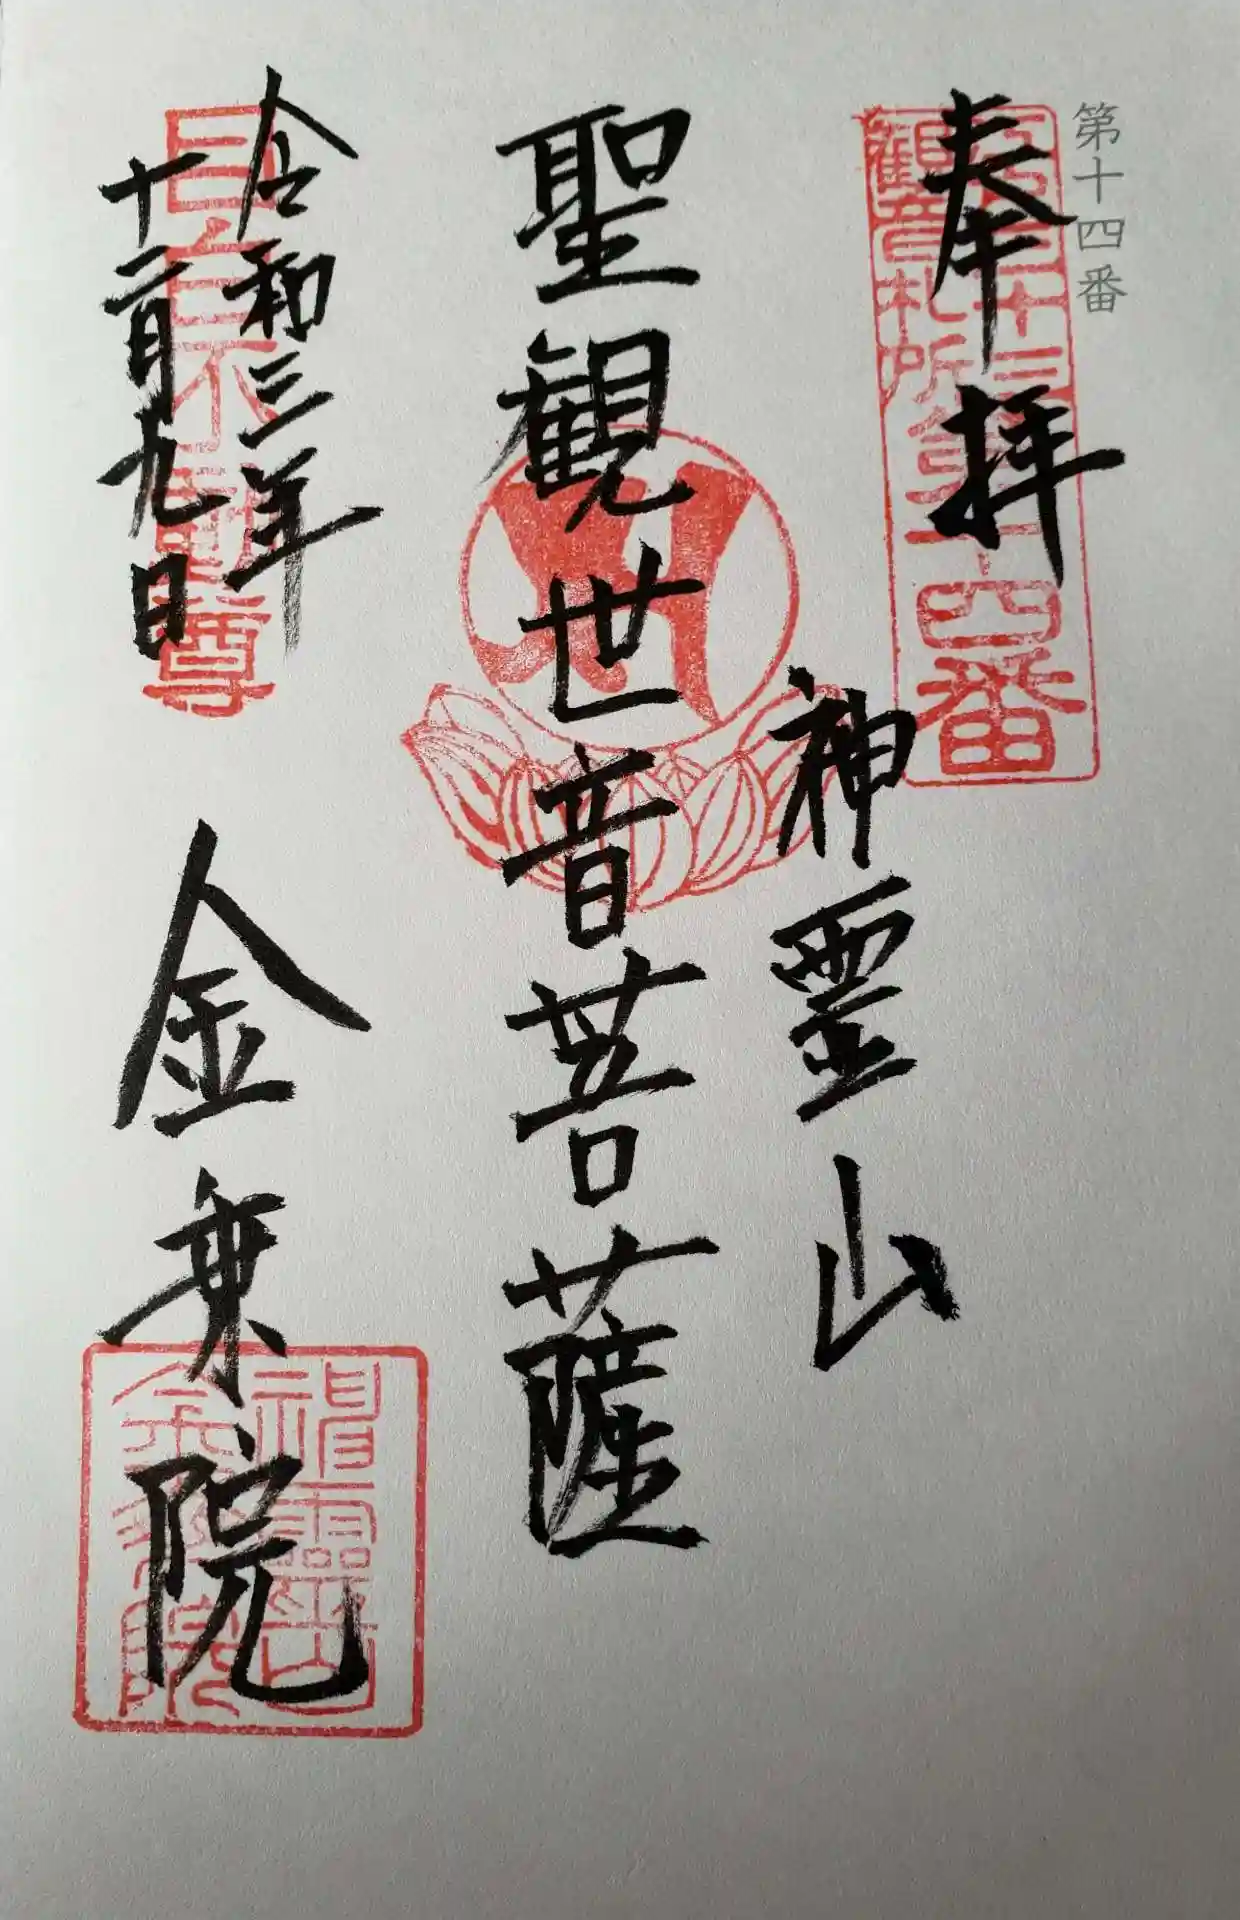 第十四番
奉拝
江戸三十三
観音札所
第十四番
神霊山
聖観世音菩薩
令和三年
十二月九日
目白不動尊
金乗院
神靈山
金乗院